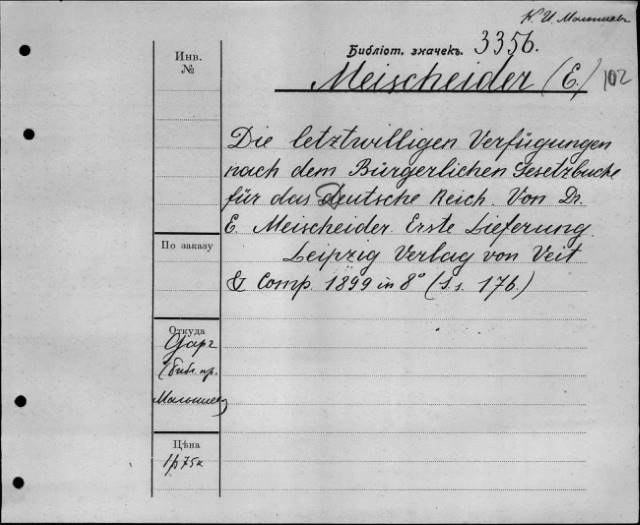 К. И. Малышев
Библіот. значекъ. 3356.
Инв.
№
Meischeider (E.) 102
Die letztwilligen Verfügungen
nach dem Bürgerlichen Gesetzbuche
für das Deutsche Reich. Von Dr.
E. Meischeider. Erste Lieferung.
По заказу
Leipzig Verlag von Veit
& Comp. 1899 in 8° (S.s. 176.)
Откуда
Даръ
(библ. пр.
Малышев
Цѣна
1р 75к